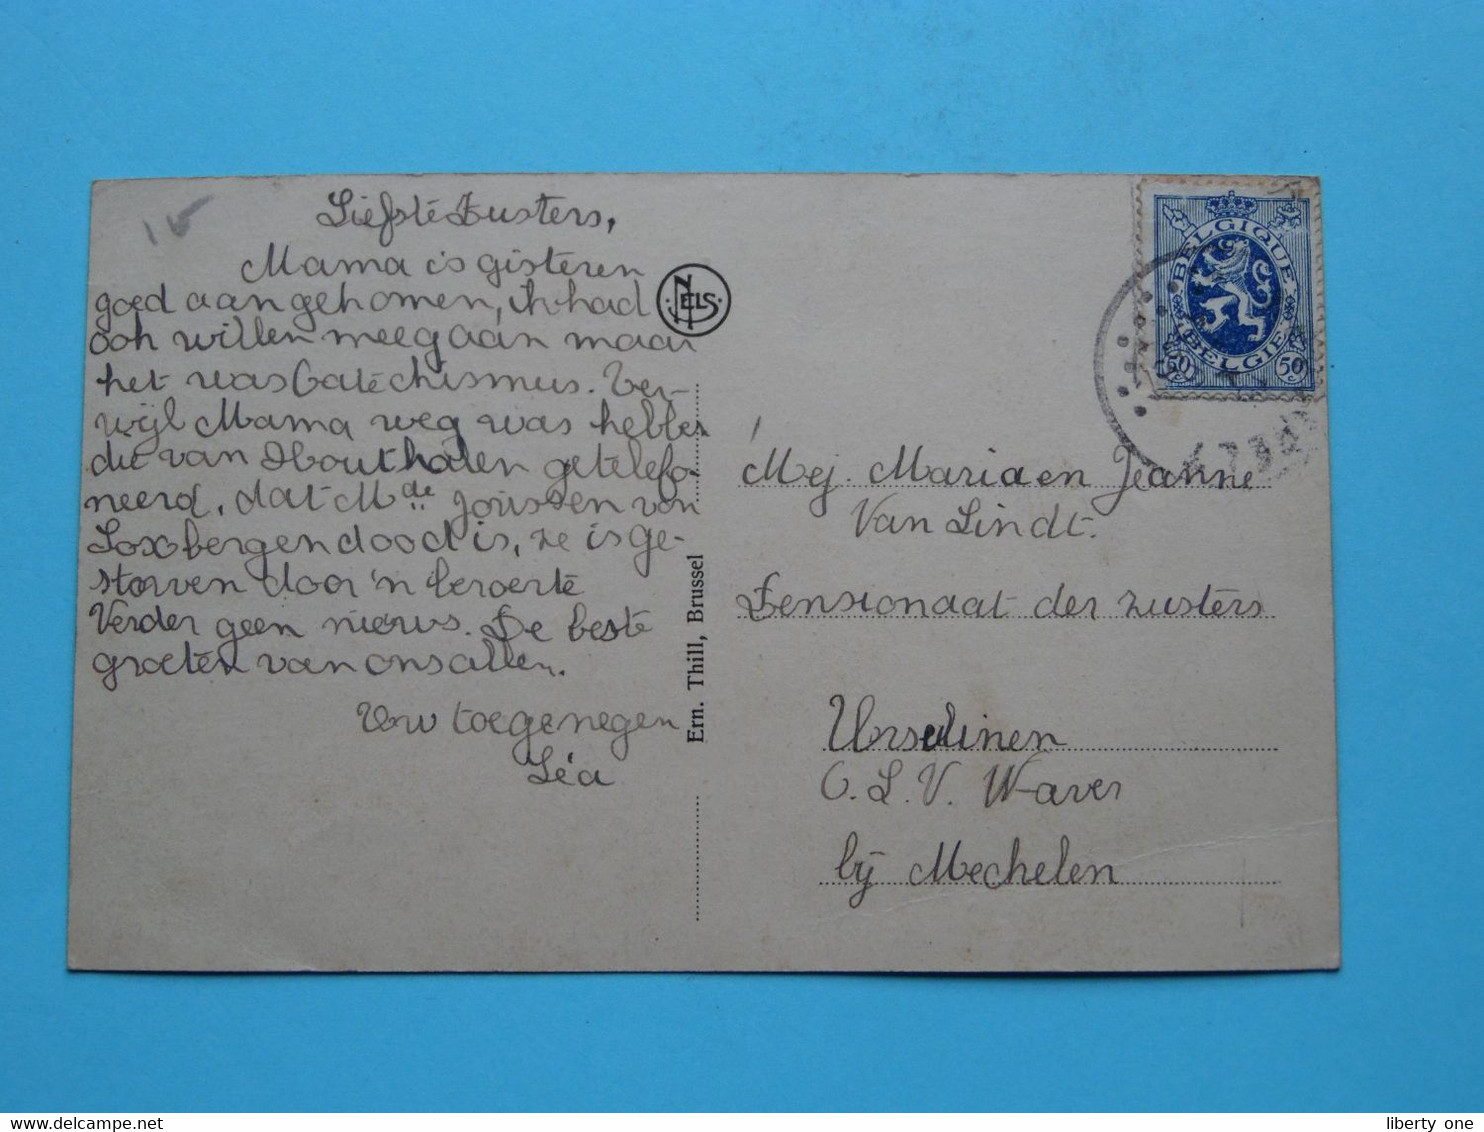 Liefste Zusters,
Mama is gisteren
goed aangekomen, ik had
ook willen meegaan maar
het was Catechismus. Ter-
wijl Mama weg was hebben
die van Houthalen getelefo-
neerd, dat Mde Jorissen van
Loxbergen dood is, ze is ge-
storven door 'n beroerte
Verder geen nieuws. De beste
groeten van ons allen.
Uw toegenegen
Léa
NELS
Ern. Thill, Brussel
BELGIQUE
BELGIE
50c
50c
Mej. Maria en Jeanne
Van Lindt.
Pensionaat der zusters
Ursulinen
O. L. V. Waver
bij Mechelen
liberty one